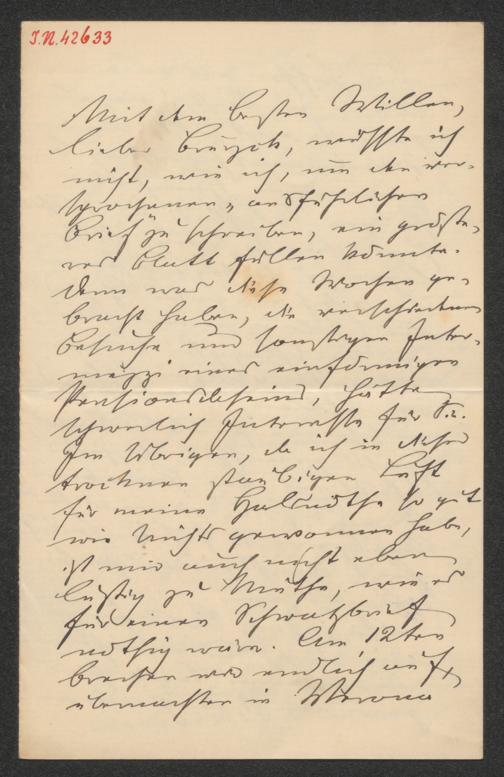 I.N. 42633
Mit dem besten Willen,
lieber Burgck, wüßte ich
nicht, wie ich, um den ver-
sprochenen „ausführlichen
Brief" zu schreiben, ein größe-
res Blatt füllen könnte.
Denn was diese Wochen ge-
bracht haben, die verschiedenen
Besuche und sonstigen Inter-
mezzi eines einförmigen
Pensionslebens, hätte
schwerlich Interesse für Sie.
Im Übrigen, da ich in dieser
trocknen staubigen Luft
für meine Halsnöthe so gut
wie Nichts gewonnen habe,
ist mir auch nicht eben
lustig zu Muthe, wie es
für einen Schwatzbrief
nöthig wäre. Am 12ten
brechen wir endlich auf,
übernachten in Verona